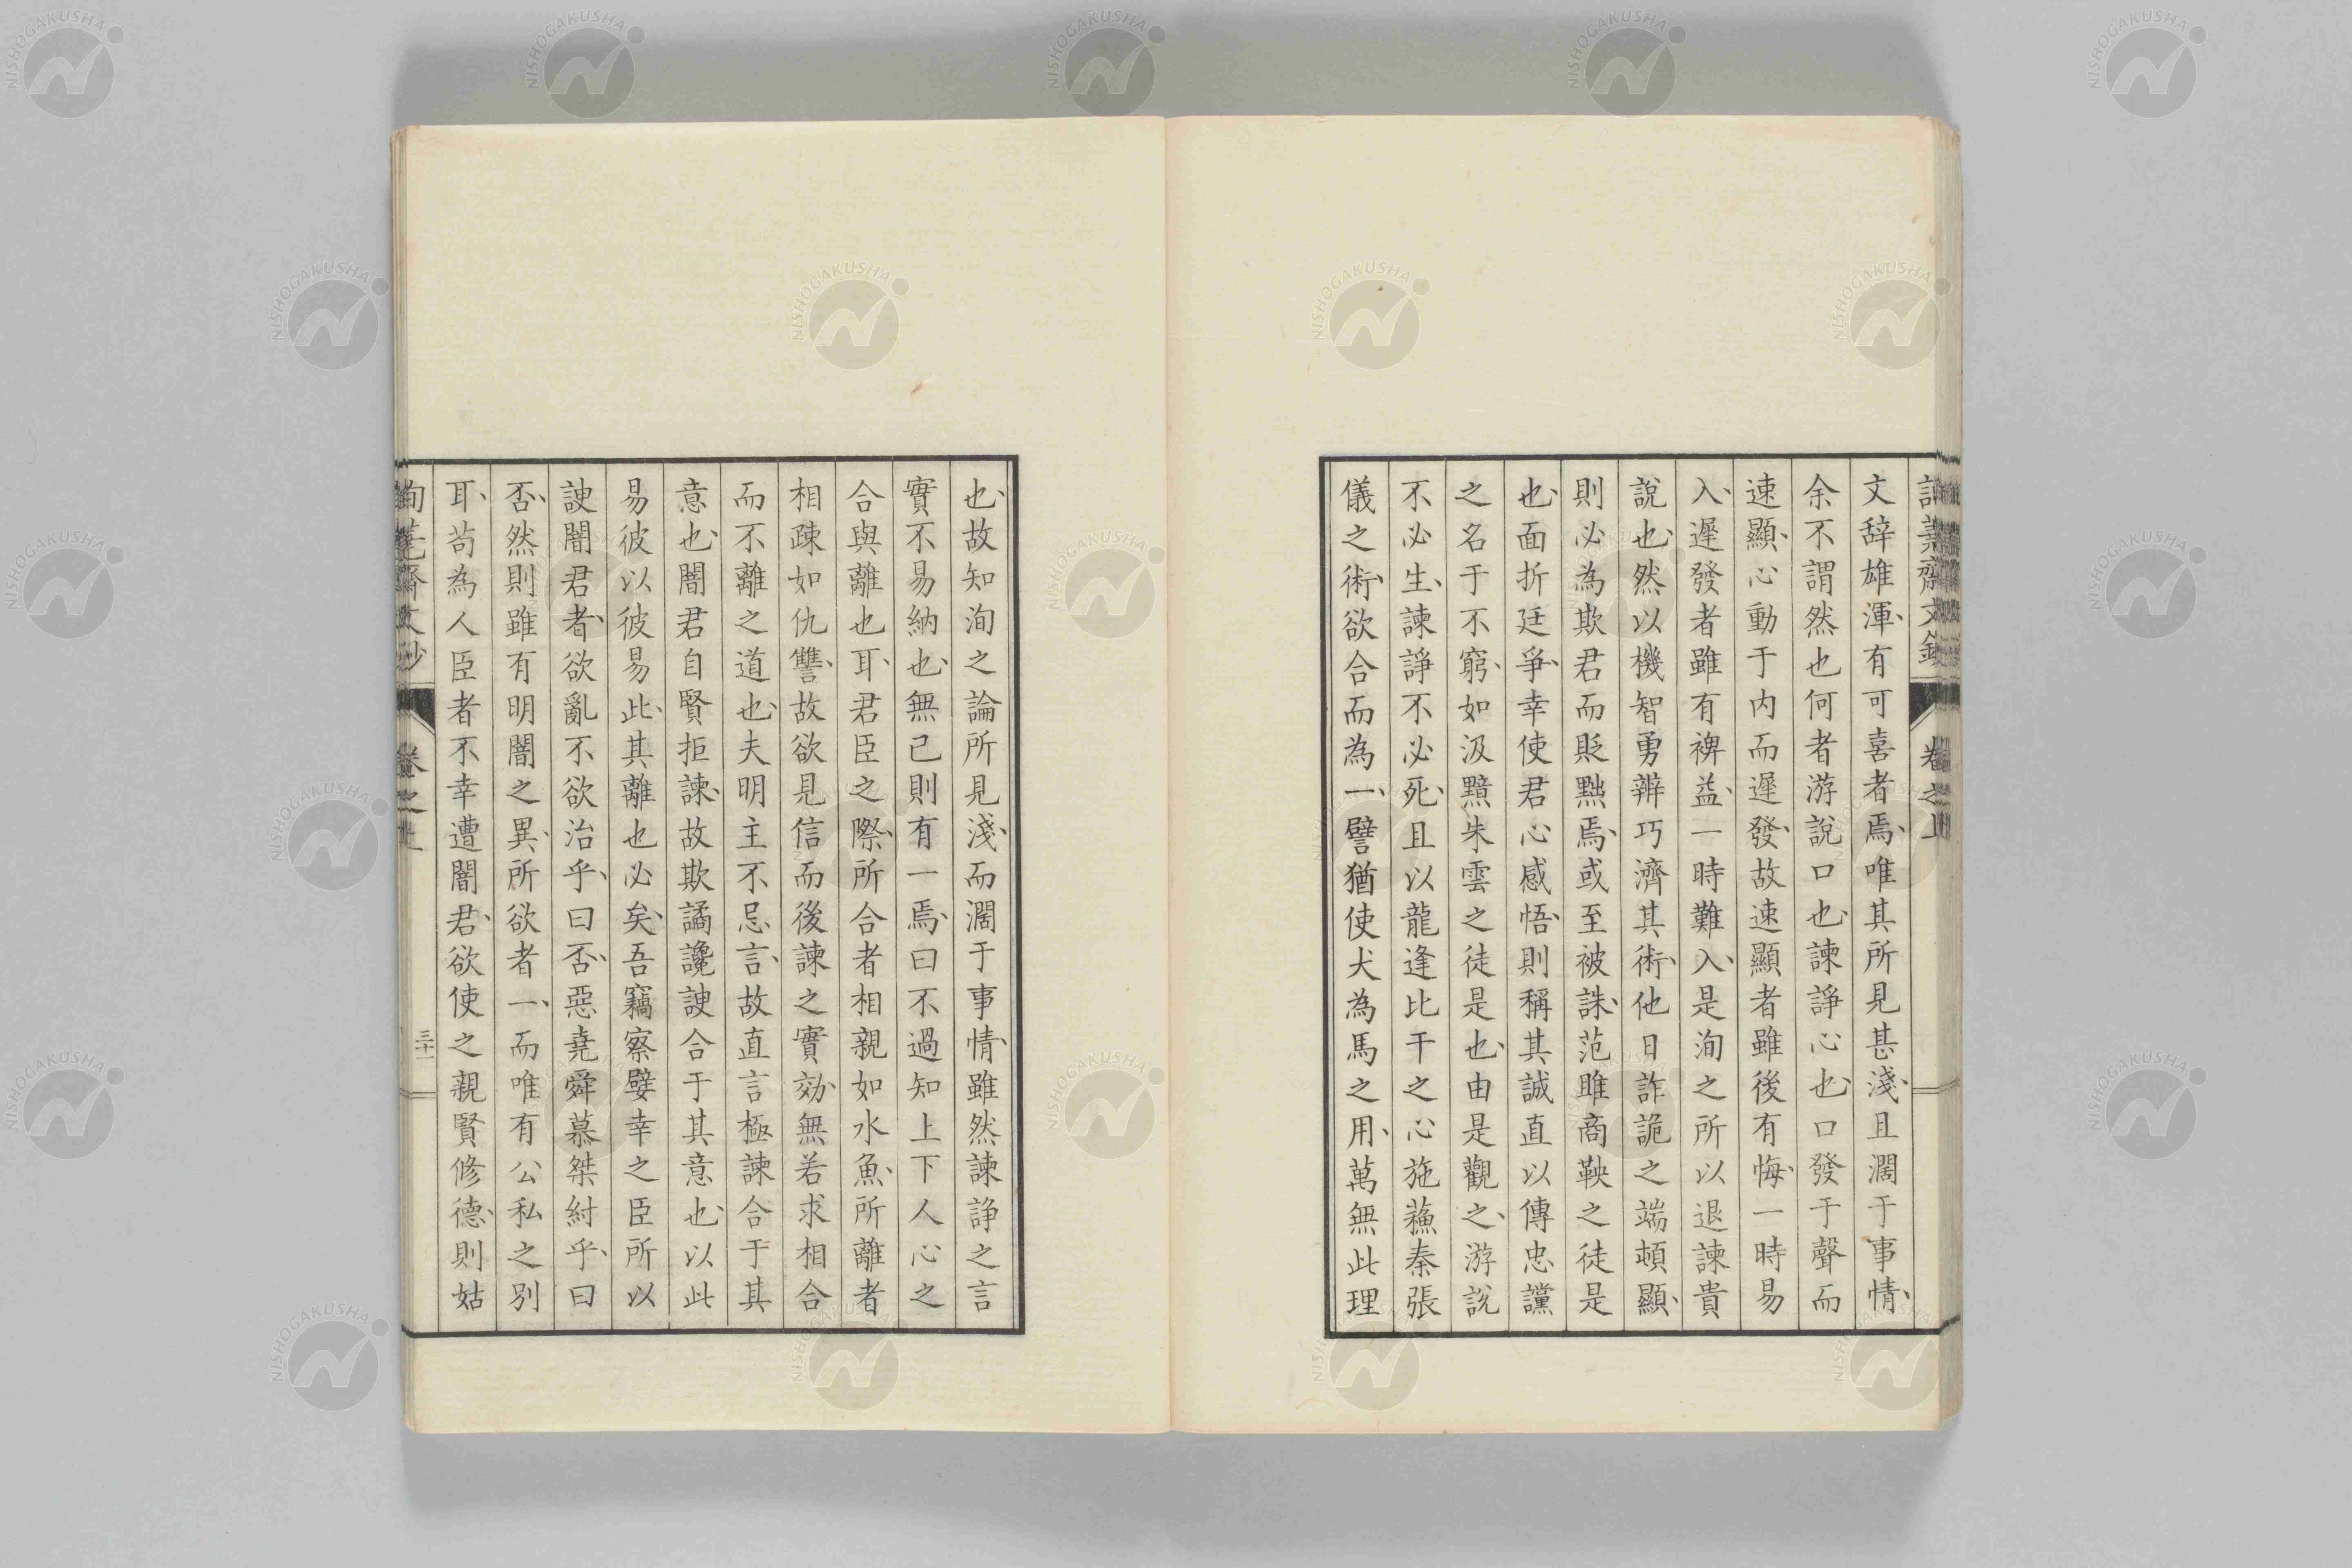 文辭雄渾、有可喜者焉、唯其所見甚淺、且濶于事情、
余不謂然也何者游說口也、諫諍心也、口發于聲而
速顯、心動于内而遲發、故速顯者雖後有悔、一時易
入、遲發者雖有裨益、一時難入、是洵之所以退諫貴
說也、然以機智勇辨巧濟其術、他日詐詭之端頓顯、
則必為欺君而貶黜焉、或至被誅、范雎商鞅之徒是
也、面折廷爭、幸使君心感悟、則稱其誠直以傳忠讜
之名于不窮、如汲黯朱雲之徒是也、由是觀之、游說
不必生、諫諍不必死、且以龍逢比干之心施蘓秦張
儀之術、欲合而為一、譬猶使犬為馬之用、萬無此理
也、故知洵之論所見淺、而濶于事情、雖然諫諍之言
實不易納也、無已則有一焉、曰不過知上下人心之
合與離也耳、君臣之際、所合者相親如水魚、所離者
相疎如仇讐、故欲見信而後諫之實効、無若求相合
而不離之道也、夫明主不忌言、故直言極諫合于其
意也、闇君自賢拒諫、故欺譎讒諛合于其意也、以此
易彼以彼易此、其離也必矣、吾竊察嬖幸之臣所以
諛闇君者、欲亂不欲治乎、曰否、惡堯舜慕桀紂乎、曰
否、然則雖有明闇之異、所欲者一、而唯有公私之別
耳、苟為人臣者不幸遭闇君、欲使之親賢修德、則姑
卷之上
三十一